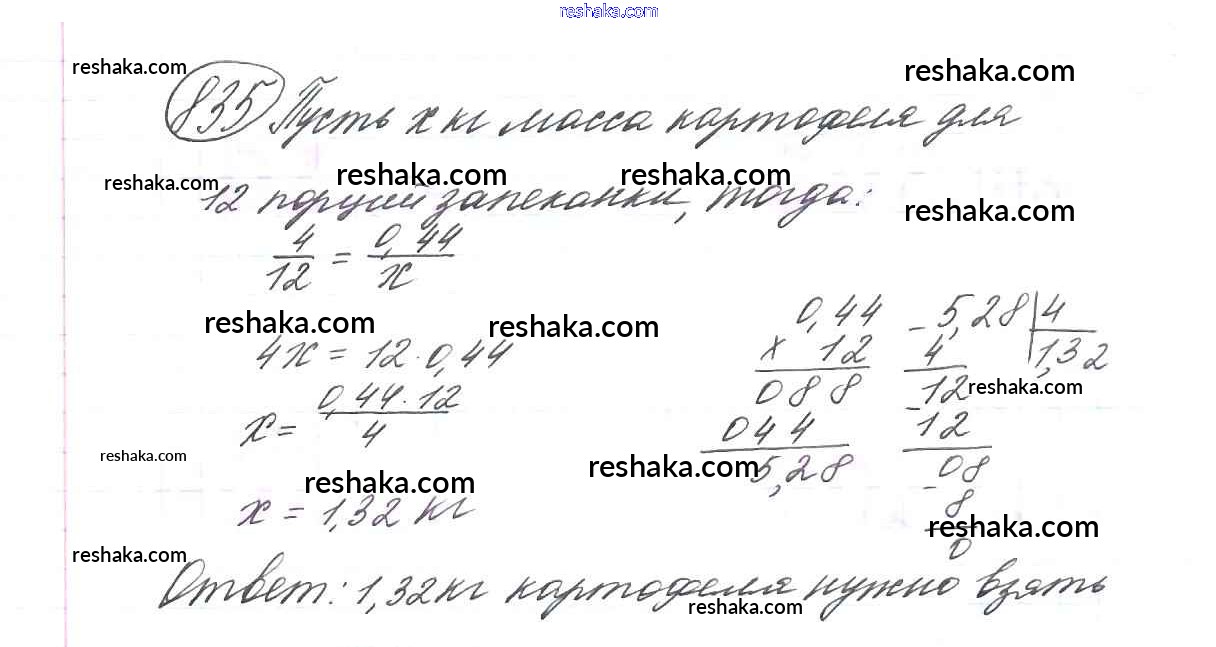 reshaka.com
reshaka.com reshaka.com
835 Пусть х кг масса картофеля для
reshaka.com reshaka.com reshaka.com
12 порций запеканки, тогда:
reshaka.com
4/12 = 0,44/х
reshaka.com reshaka.com
4х = 12·0,44
х = 0,44·12/4
х = 1,32 кг
0,44
х 12
088
044
5,28
- 5,28 | 4
4 | 1,32
- 12
12
- 08
8
0
reshaka.com
reshaka.com
reshaka.com
reshaka.com
reshaka.com
reshaka.com
Ответ: 1,32кг картофеля нужно взять
reshaka.com